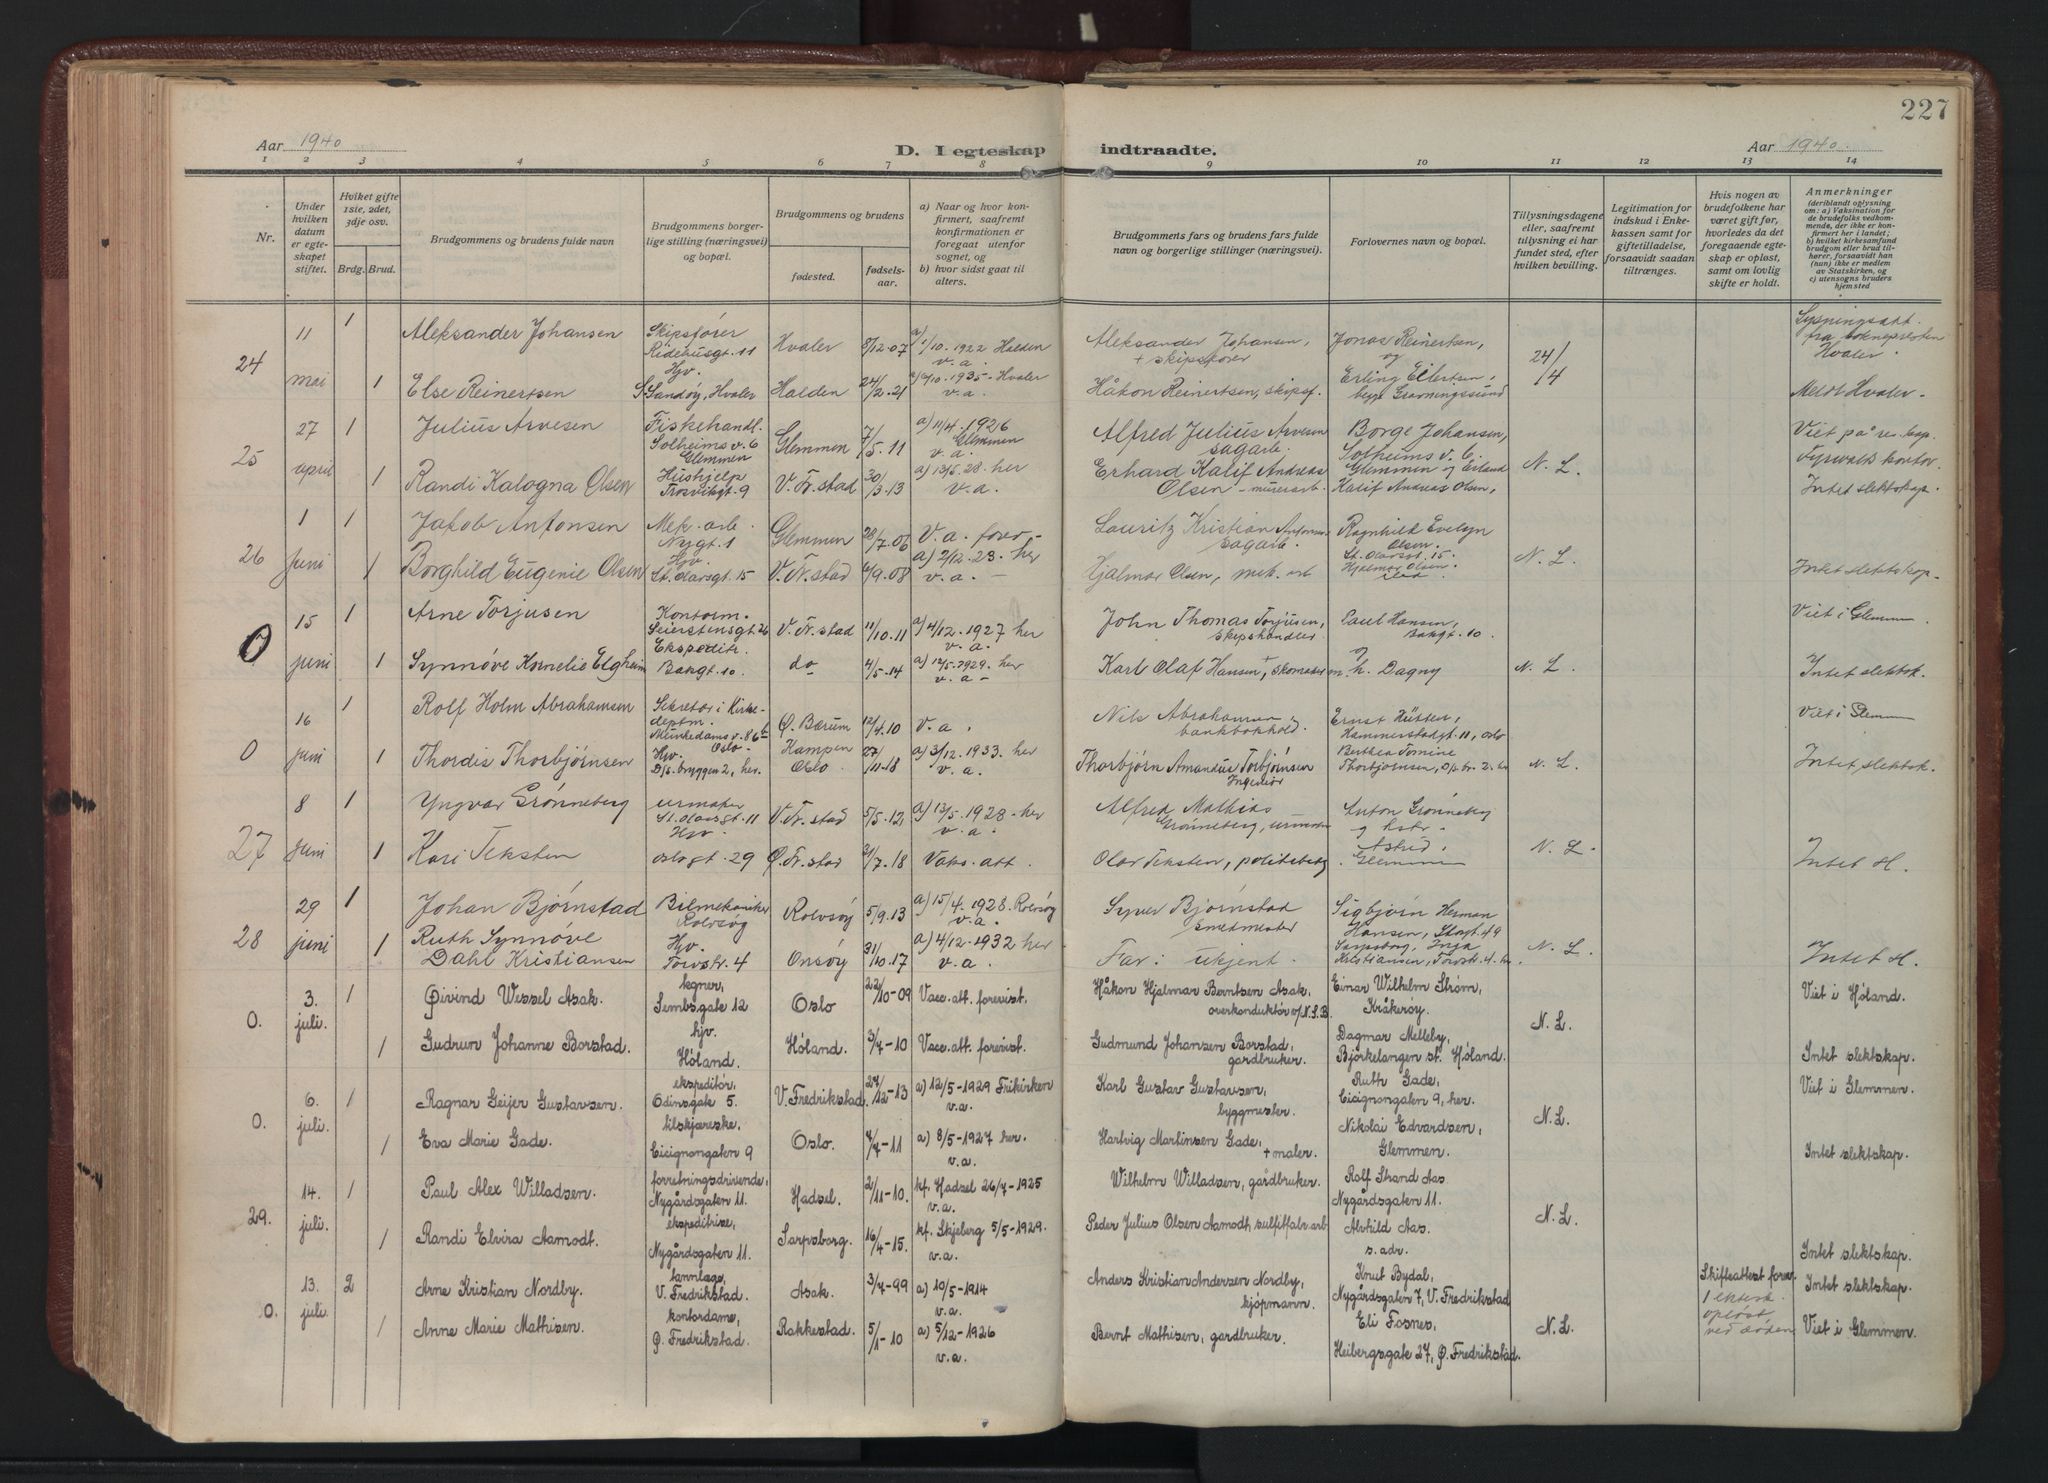 227
Aar 1940
D. I egteskap indtraadte.
Aar 1940.
1 2 3 4 5 6 7 8 9 10 11 12 13 14
Nr.
Under hvilken datum er egteskapet stiftet.
Hvilket gifte 1ste, 2det, 3dje osv.
Brdg. Brud.
Brudgommens og brudens fulde navn
Brudgommens borgerlige stilling (næringsvei) og bopæl.
Brudgommens og brudens
fødested.
fødselsaar.
a) Naar og hvor konfirmert, saafremt konfirmationen er foregaat utenfor sognet, og
b) hvor sidst gaat til alters.
Brudgommens fars og brudens fars fulde navn og borgerlige stillinger (næringsvei).
Forlovernes navn og bopæl.
Tillysningsdagene eller, saafremt tillysning ei har fundet sted, efter hvilken bevilling.
Legitimation for indskud i Enkekassen samt for giftetilladelse, forsaavidt saadan tiltrænges.
Hvis nogen av brudefolkene har været gift før, hvorledes da det foregaaende egteskap er opløst, samt om lovlig skifte er holdt.
Anmerkninger (deriblandt oplysning om: a) Vaksination for de brudefolks vedkommende, der ikke er konfirmert her i landet; b) hvilket kirkesamfund brudgom eller brud tilhører, forsaavidt han (hun) ikke er medlem av Statskirken, og c) utensogns bruders hjemsted
24
11 mai
1 Aleksander Johansen Skipsfører Ridehusgt. 11 Hvaler 8/12.07 a) 1/10.1922 Halden v.a. Aleksander Johansen, + skipsfører Jonas Reinertsen, og 24/4 Lysningsatt. fra sokneprosten Hvaler.
1 Else Reinertsen Hjv. S. Sandøy, Hvaler Halden 24/2.21 a) 6/10.1935 - Hvaler v.a. Håkon Reinertsen, skipsf. Erling Eilertsen, begge Gravningssund Meldt Hvaler -
25
27 april
1 Julius Arvesen Fiskehandl. Solheims v. 6 Glemmen Glemmen 7/5.11 a) 11/4.1926 Glemmen v.a. Alfred Julius Arvesen sagarb. Borge Johansen, Solheims v. 6. Glemmen og Erland N. L. Viet på res. kap.
1 Randi Kalogna Olsen Hushjelp Trosvikgt. 9 V. Fr.stad 30/3.13 a) 13/5.28. her v.a. Erhard Kalif Andreas Olsen - murerarb. Kalif Andreas Olsen, Intet slektskap.
26
1 Juni
1 Jakob Antonsen Mek. arb. Nygt. 1 Glemmen 28/7.06 V.a. forev - Lauritz Kristian Antonsen sagarb. Ragnhild Evelyn Olsen. St. Olavsgt. 15. N. L.
1 Borghild Eugenie Olsen Hjv. St. Olavsgt. 15 V. Fr. stad 6/9.08 a) 2/12.23. her v.a. - Hjalmar Olsen, mek. arb Hjalmar Olsen. Intet slektskap.
0
15 juni
1 Arne Torjusen Kontorm. Seierstensgt. 26 V. Fr. stad 11/10.11 a) 4/12.1927 her v.a. John Thomas Torjusen, skipshandler Paul Hansen, Bakgt. 10. Viet i Glemmen
1 Synnøve Kornelie Elgheim Ekspeditr. Bakgt. 10 do 4/5-14 a) 12/5.1929. her v.a - Karl Olaf Hansen, + skomaker m. h. Dagny N. L. Intet slektsk.
0
16 juni
1 Rolf Holm Abrahamsen Sekretær i Kirkedeptm. Munkedams v. 86 b Oslo Ø. Bærum 12/4.10 V.a. Nils Abrahamsen, bankbokhold. Ernst Hütten, Hammerstadgt. 11, Oslo Viet i Glemmen
1 Thordis Thorbjørnsen Hjv. D/S. bryggen 2, her. Kampen Oslo 27/11.18 a) 3/12.1933. her v.a. Thorbjørn Amandus Torbjørnsen Ingeniør Berthea Tomine Thorbjørnsen, N. L. Intet slektsk.
27
8 juni
1 Yngvar Grønneberg urmaker St. Olavsgt. 11 V. Fr. stad 5/5.12 a) 13/5.1928 - her v.a. Alfred Mathias Grønneberg, urmaker Anton Grønneberg og hstr. N. L.
1 Kari Teksten Hjv. Oslogt. 29 Ø. Fr. stad 31/7.18 Vaks. att. Olav Teksten, politibetj. Astrid, Glemmen Intet sl.
28
29 juni
1 Johan Bjørnstad Bilmekaniker Rolvsøy Rolvsøy 5/9.13 a) 15/4.1928. Rolvsøy v.a. Syver Bjørnstad smedmester Sigbjørn Herman Hansen, 49 N. L.
1 Ruth Synnøve Dahl Kristiansen Hjv. Torvstr. 4 Onsøy 31/10.17 a) 4/12.1932 her v.a. Far: ukjent. Sarpsborg, Inga Kristiansen, Torvstr. 4. her. Intet sl.
0.
3. juli.
1 Øivind Wessel Asak. tegner, Sembsgate 12 Oslo 22/10-09 Vacc. att. forevist. Håkon Hjalmar Berntsen Asak, overkonduktør v/N.S.B. Einar Wilhelm Strøm, Kråkerøy. N. L. Viet i Høland.
1 Gudrun Johanne Borstad. hjv. Høland. Høland. 3/7-10 Vacc. att. forevist. Gudmund Johansen Borstad, gardbruker. Dagmar Melleby, Bjørkelangen st. Høland. Intet slektskap.
0.
6. juli.
1 Ragnar Geijer Gustavsen. ekspeditør, Odinsgate 5. V. Fredrikstad. 27/12-13 a) 12/5-1929 Frikirken v.a. Karl Gustav Gustavsen, byggmester. Ruth Gade, Cicignongaten 9, her. N. L. Viet i Glemmen.
1 Eva Marie Gade. tilskjæreske, Cicignongaten 9 Oslo. 4/7-11 a) 8/5-1927 her. v.a. Hartvig Martinsen Gade, + maler. Nikolai Edvardsen, Glemmen. Intet slektskap.
29.
14. juli.
1 Paul Alex Willadsen. forretningsdrivende, Nygårdsgaten 11. Hadsel. 2/11-10. kf. Hadsel 26/7-1925 v.a. Wilhelm Willadsen, gårdbruker. Rolf Strand Aas Nygårdsgaten 11. N. L.
1 Randi Elvira Aamodt. ekspeditrise, Nygårdsgaten 11. Sarpsborg. 16/4-15. kf. Skjeberg 5/5-1929. v.a. Peder Julius Olsen Aamodt, sulfitfabr. arb Alvhild Aas. s. adr. Intet slektskap.
0.
13. juli
2 Arne Kristian Nordby. tannlæge, V. Fredrikstad. Asak. 3/7-99 a) 10/5-1914 v.a. Anders Kristian Andersen Nordby, kjøpmann. Knut Bydal, Nygårdsgaten 7, V. Fredrikstad N. L. Skifteattest forev. 1 ektesk. opløst ved døden Intet slektskap.
1 Anne Marie Mathisen. kontordame, Ø. Fredrikstad. Rakkestad. 5/1-10 a) 5/12-1926 v.a. Bernt Mathisen, gardbruker. Eli Fosnes, Heibergsgate 27, Ø. Fredrikstad. Viet i Glemmen.